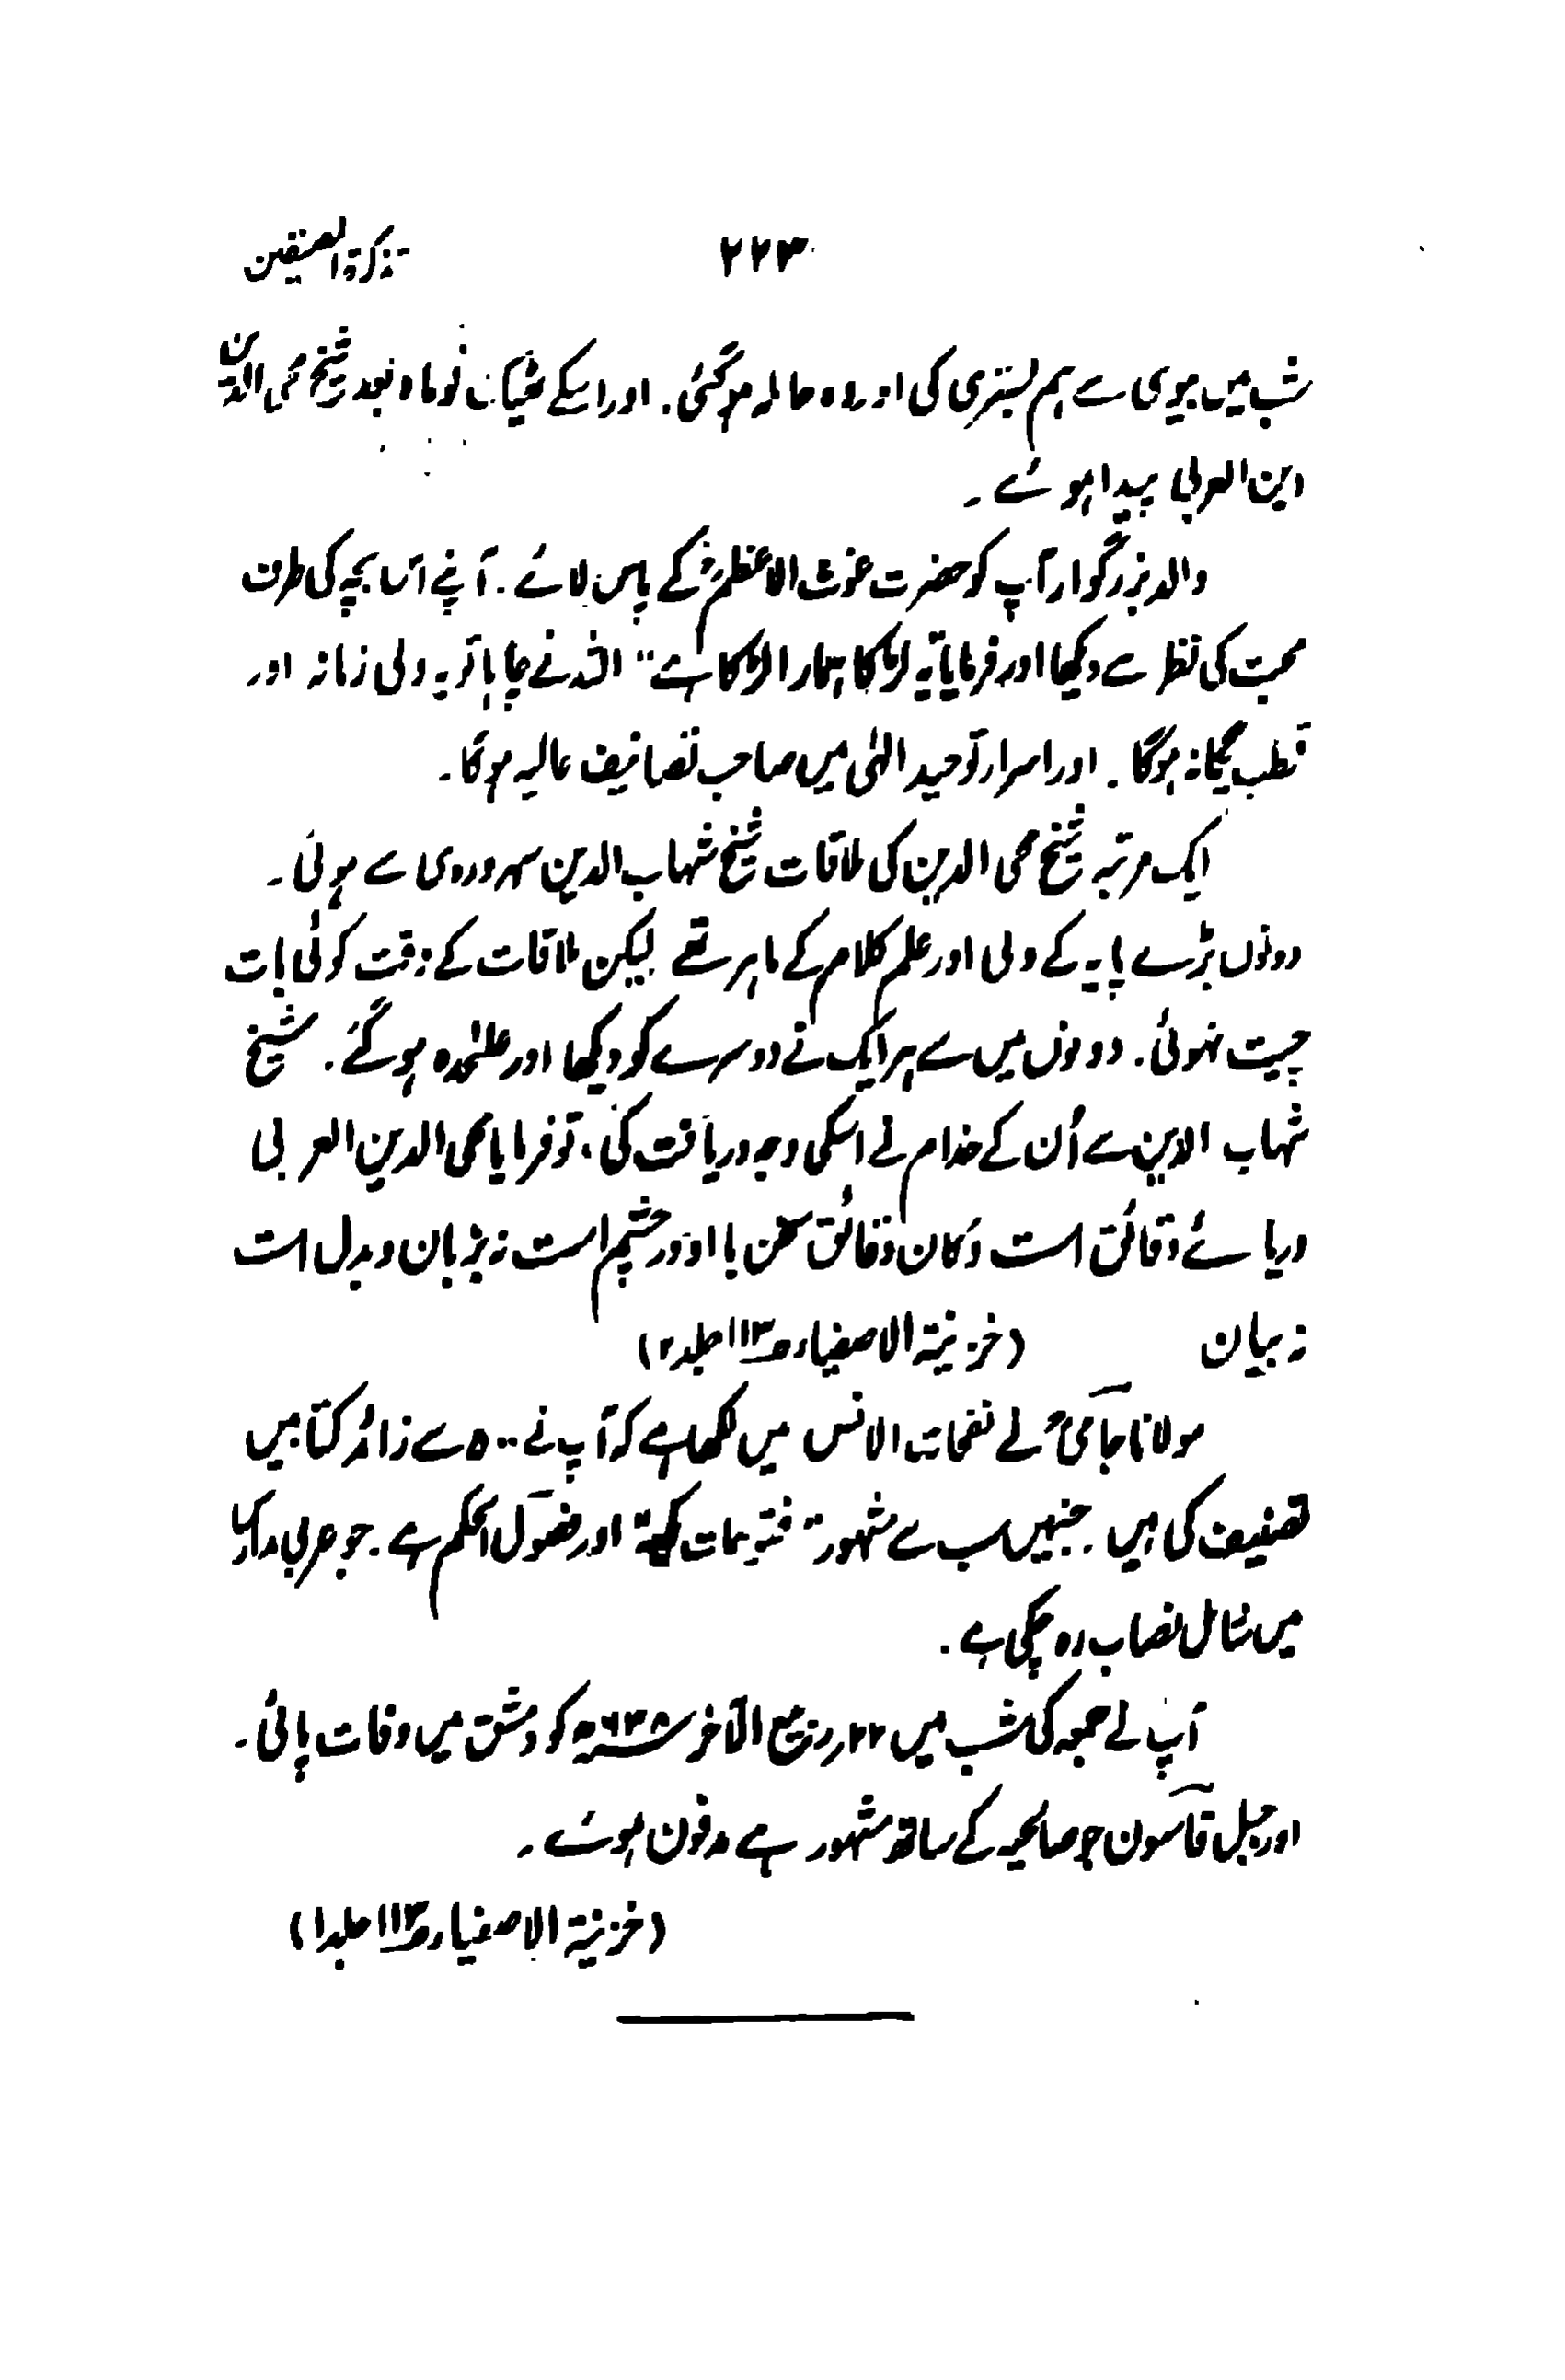 تذکرۃ المصنفین ۲۲۳
شب میں بیوی سے ہم بستری کی اور وہ حاملہ ہو گئی۔ اور اسکے ٹھیک نو ماہ بعد شیخ محی الدین
ابن العربی پیدا ہوئے۔
والد بزرگوار آپ کو حضرت غوث الاعظمؒ کے پاس لائے۔ آپنے اس بچہ کی طرف
محبت کی نظر سے دیکھا اور فرمایا یہ لڑکا ہمارا لڑکا ہے" اللہ نے چاہا تو یہ ولی زمانہ اور
قطب یگانہ ہوگا۔ اور اسرار توحید الٰہی میں صاحب تصانیف عالیہ ہوگا۔
ایک مرتبہ شیخ محی الدین کی ملاقات شیخ شہاب الدین سہروردی سے ہوئی۔
دونوں بڑے پایہ کے ولی اور علم کلام کے ماہر تھے لیکن ملاقات کے وقت کوئی بات
چیت نہوئی۔ دونوں میں سے ہر ایک نے دوسرے کو دیکھا اور علیٰحدہ ہو گئے۔ شیخ
شہاب الدین سے اُن کے خدام نے اسکی وجہ دریافت کی، تو فرمایا محی الدین العربی
دریائے دقائق است و کان دقائق سخن با او در چشم است نہ بزبان و بدل است
نہ بیان (خزینۃ الاصفیاء ص۱۱۳ جلد ۲)
مولانا جامیؒ نے نفحات الانس میں لکھا ہے کہ آپ نے ۵۰۰ سے زائد کتابیں
تصنیف کی ہیں۔ جنہیں سب سے مشہور فتوحات مکیۃ اور فصول الحکم ہے۔ جو عربی مدارس
میں شامل نصاب رہ چکی ہے۔
آپ نے جمعہ کی شب میں ۲۲ ربیع الآخر ۶۳۸ھ کو دمشق میں وفات پائی۔
اور جبل قاسون جو صالحیہ کے ساتھ مشہور ہے مدفون ہوئے۔
(خزینۃ الاصفیاء ص۱۱۳ جلد ۱)